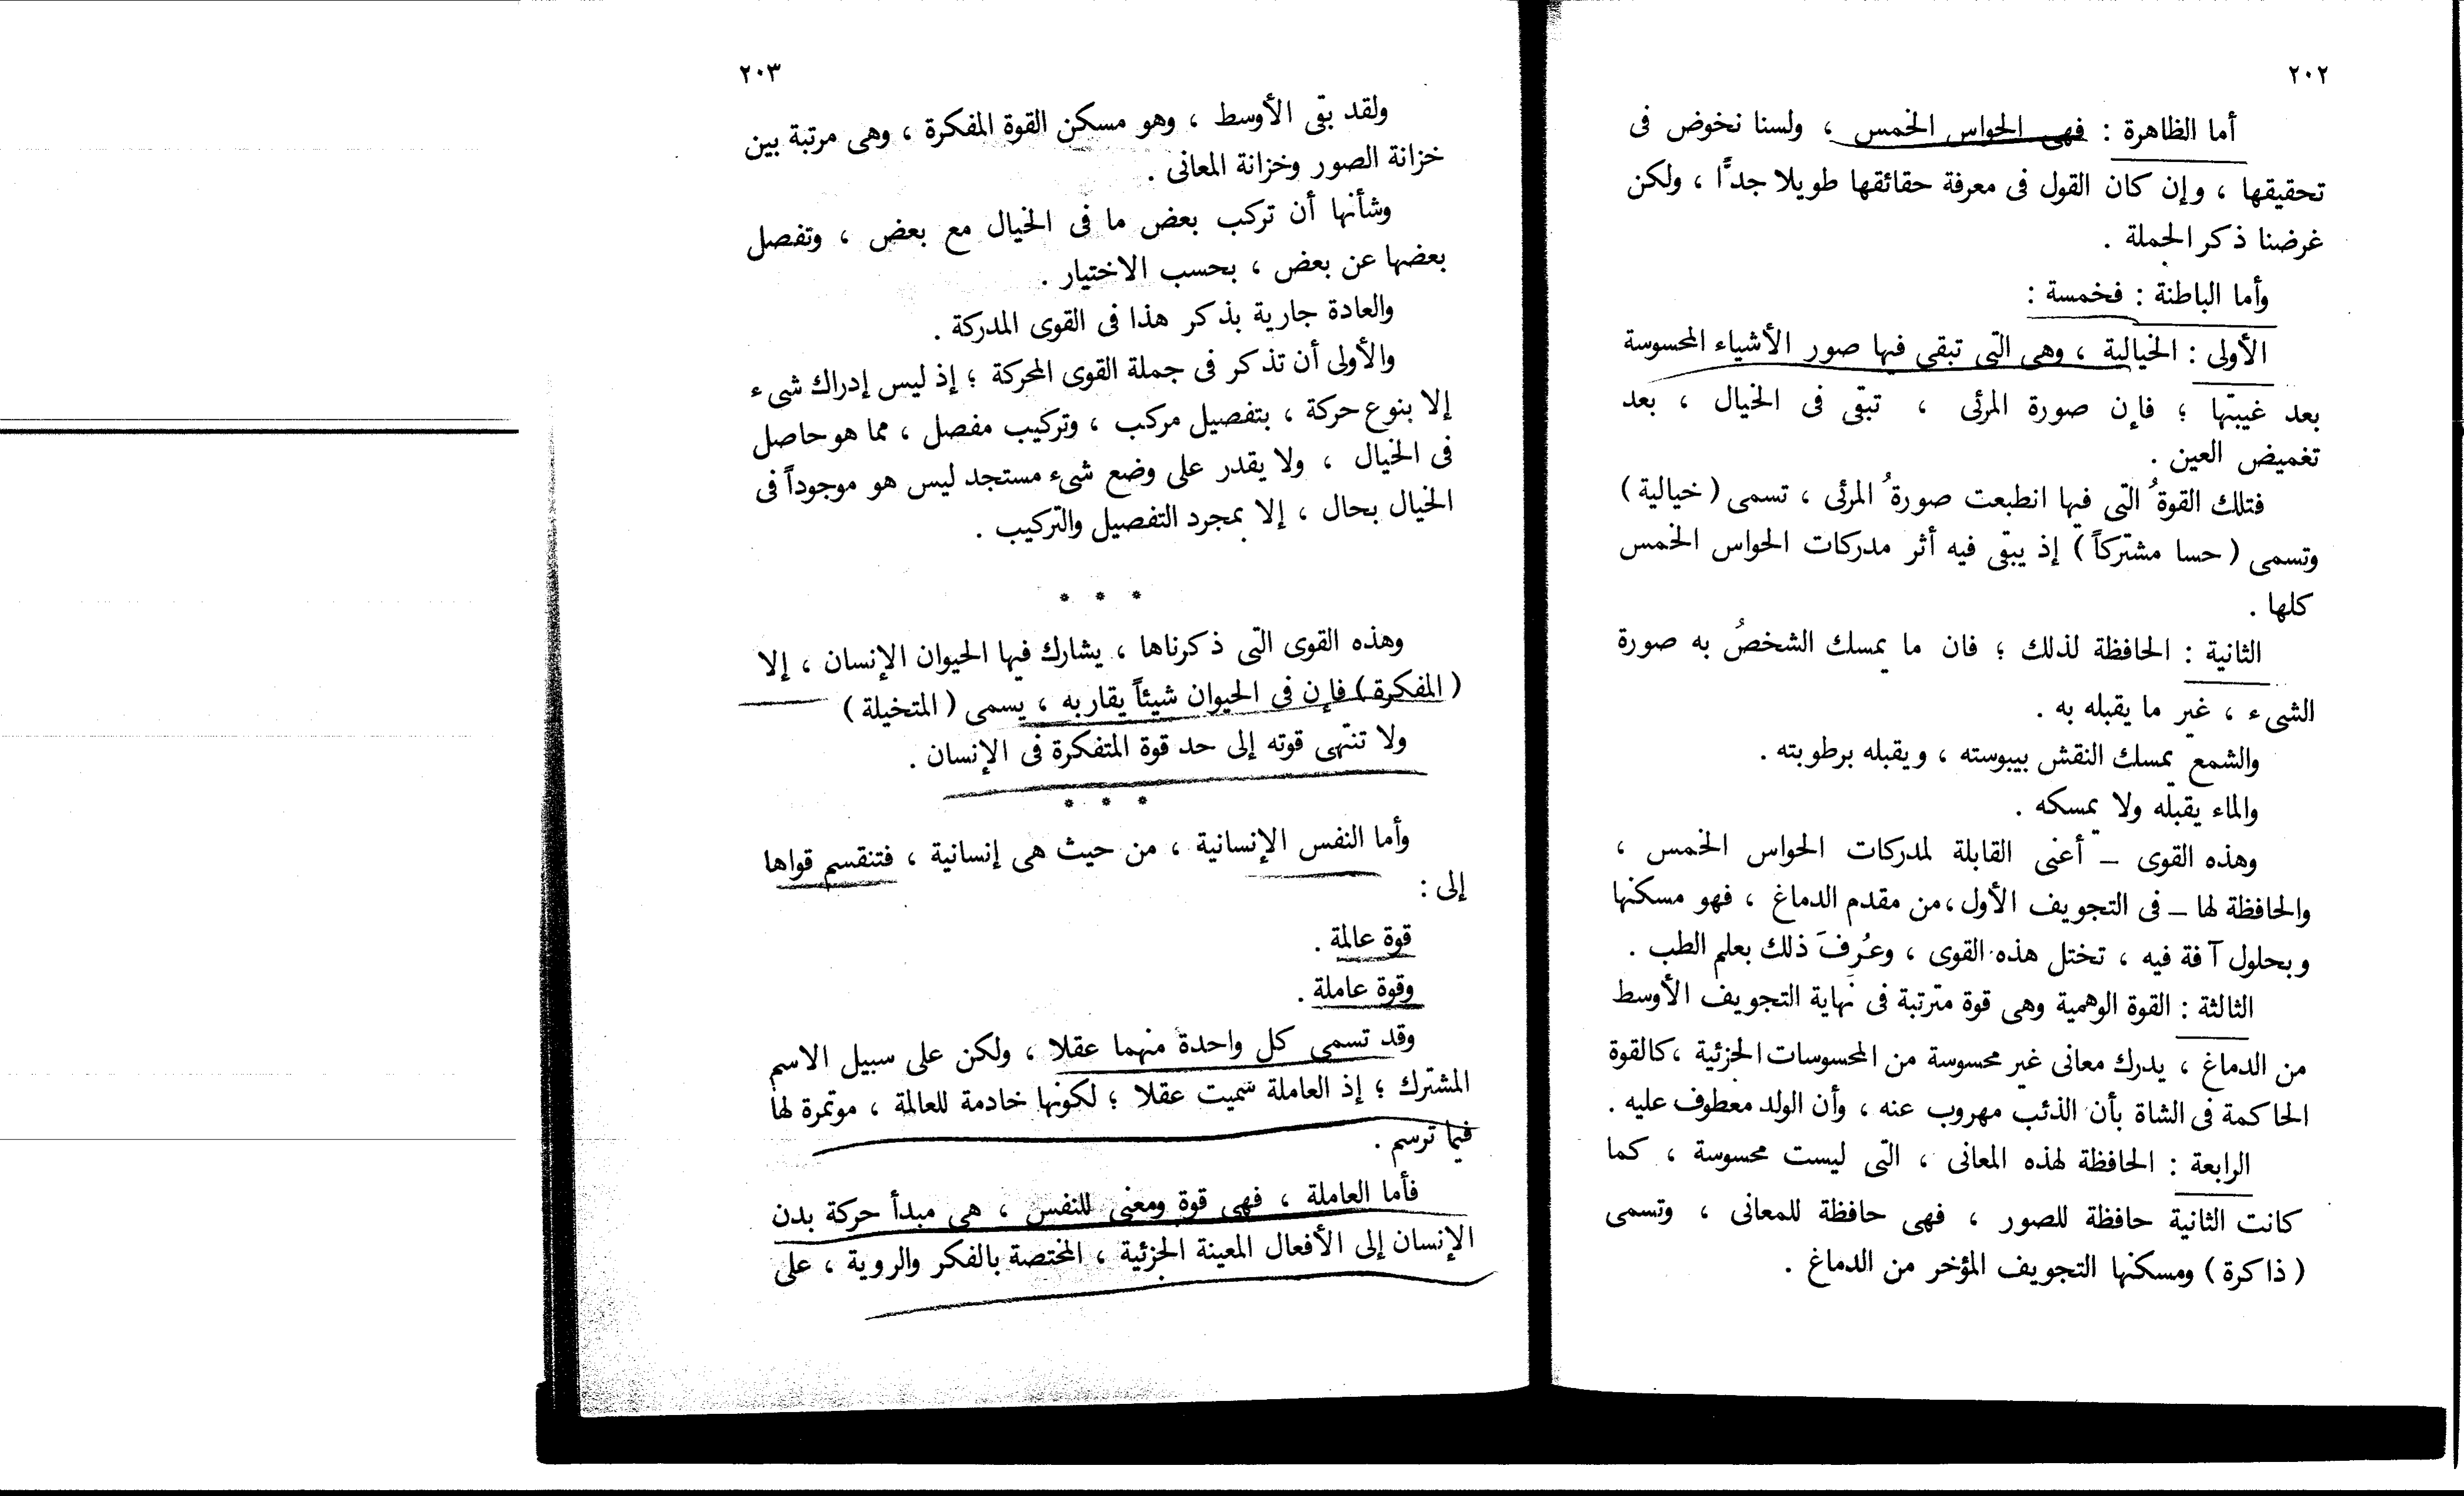 ٢٠٢
أما الظاهرة : فهى الحواس الخمس ، ولسنا نخوض فى
تحقيقها ، وإن كان القول فى معرفة حقائقها طويلا جدًّا ، ولكن
غرضنا ذكر الجملة .
وأما الباطنة : فخمسة :
الأولى : الخيالية ، وهى التى تبقى فيها صور الأشياء المحسوسة
بعد غيبتها ؛ فإن صورة المرئى ، تبقى فى الخيال ، بعد
تغميض العين .
فتلك القوةُ التى فيها انطبعت صورةُ المرئى ، تسمى ( خيالية )
وتسمى ( حسا مشتركاً ) إذ يبقى فيه أثر مدركات الحواس الخمس
كلها .
الثانية : الحافظة لذلك ؛ فان ما يمسك الشخصُ به صورة
الشىء ، غير ما يقبله به .
والشمع يمسك النقش بيبوسته ، ويقبله برطوبته .
والماء يقبله ولا يمسكه .
وهذه القوى – أعنى القابلة لمدركات الحواس الخمس ،
والحافظة لها – فى التجويف الأول ،من مقدم الدماغ ، فهو مسكنها
وبحلول آفة فيه ، تختل هذه القوى ، وعُرِفَ ذلك بعلم الطب .
الثالثة : القوة الوهمية وهى قوة مترتبة فى نهاية التجويف الأوسط
من الدماغ ، يدرك معانى غير محسوسة من المحسوسات الجزئية ،كالقوة
الحاكمة فى الشاة بأن الذئب مهروب عنه ، وأن الولد معطوف عليه .
الرابعة : الحافظة لهذه المعانى ، التى ليست محسوسة ، كما
كانت الثانية حافظة للصور ، فهى حافظة للمعانى ، وتسمى
( ذاكرة ) ومسكنها التجويف المؤخر من الدماغ .
٢٠٣
ولقد بقى الأوسط ، وهو مسكن القوة المفكرة ، وهى مرتبة بين
خزانة الصور وخزانة المعانى .
وشأنها أن تركب بعض ما فى الخيال مع بعض ، وتفصل
بعضها عن بعض ، بحسب الاختيار .
والعادة جارية بذكر هذا فى القوى المدركة .
والأولى أن تذكر فى جملة القوى المحركة ؛ إذ ليس إدراك شىء
إلا بنوع حركة ، بتفصيل مركب ، وتركيب مفصل ، مما هو حاصل
فى الخيال ، ولا يقدر على وضع شىء مستجد ليس هو موجوداً فى
الخيال بحال ، إلا بمجرد التفصيل والتركيب .
* * *
وهذه القوى التى ذكرناها ، يشارك فيها الحيوان الإنسان ، إلا
( المفكرة ) فإن فى الحيوان شيئاً يقاربه ، يسمى ( المتخيلة )
ولا تنتهى قوته إلى حد قوة المتفكرة فى الإنسان .
* * *
وأما النفس الإنسانية ، من حيث هى إنسانية ، فتنقسم قواها
إلى :
قوة عالمة .
وقوة عاملة .
وقد تسمى كل واحدة منهما عقلا ، ولكن على سبيل الاسم
المشترك ؛ إذ العاملة سميت عقلا ؛ لكونها خادمة للعالمة ، موتمرة لها
فيما ترسم .
فأما العاملة ، فهى قوة ومعنى للنفس ، هى مبدأ حركة بدن
الإنسان إلى الأفعال المعينة الجزئية ، المختصة بالفكر والروية ، على